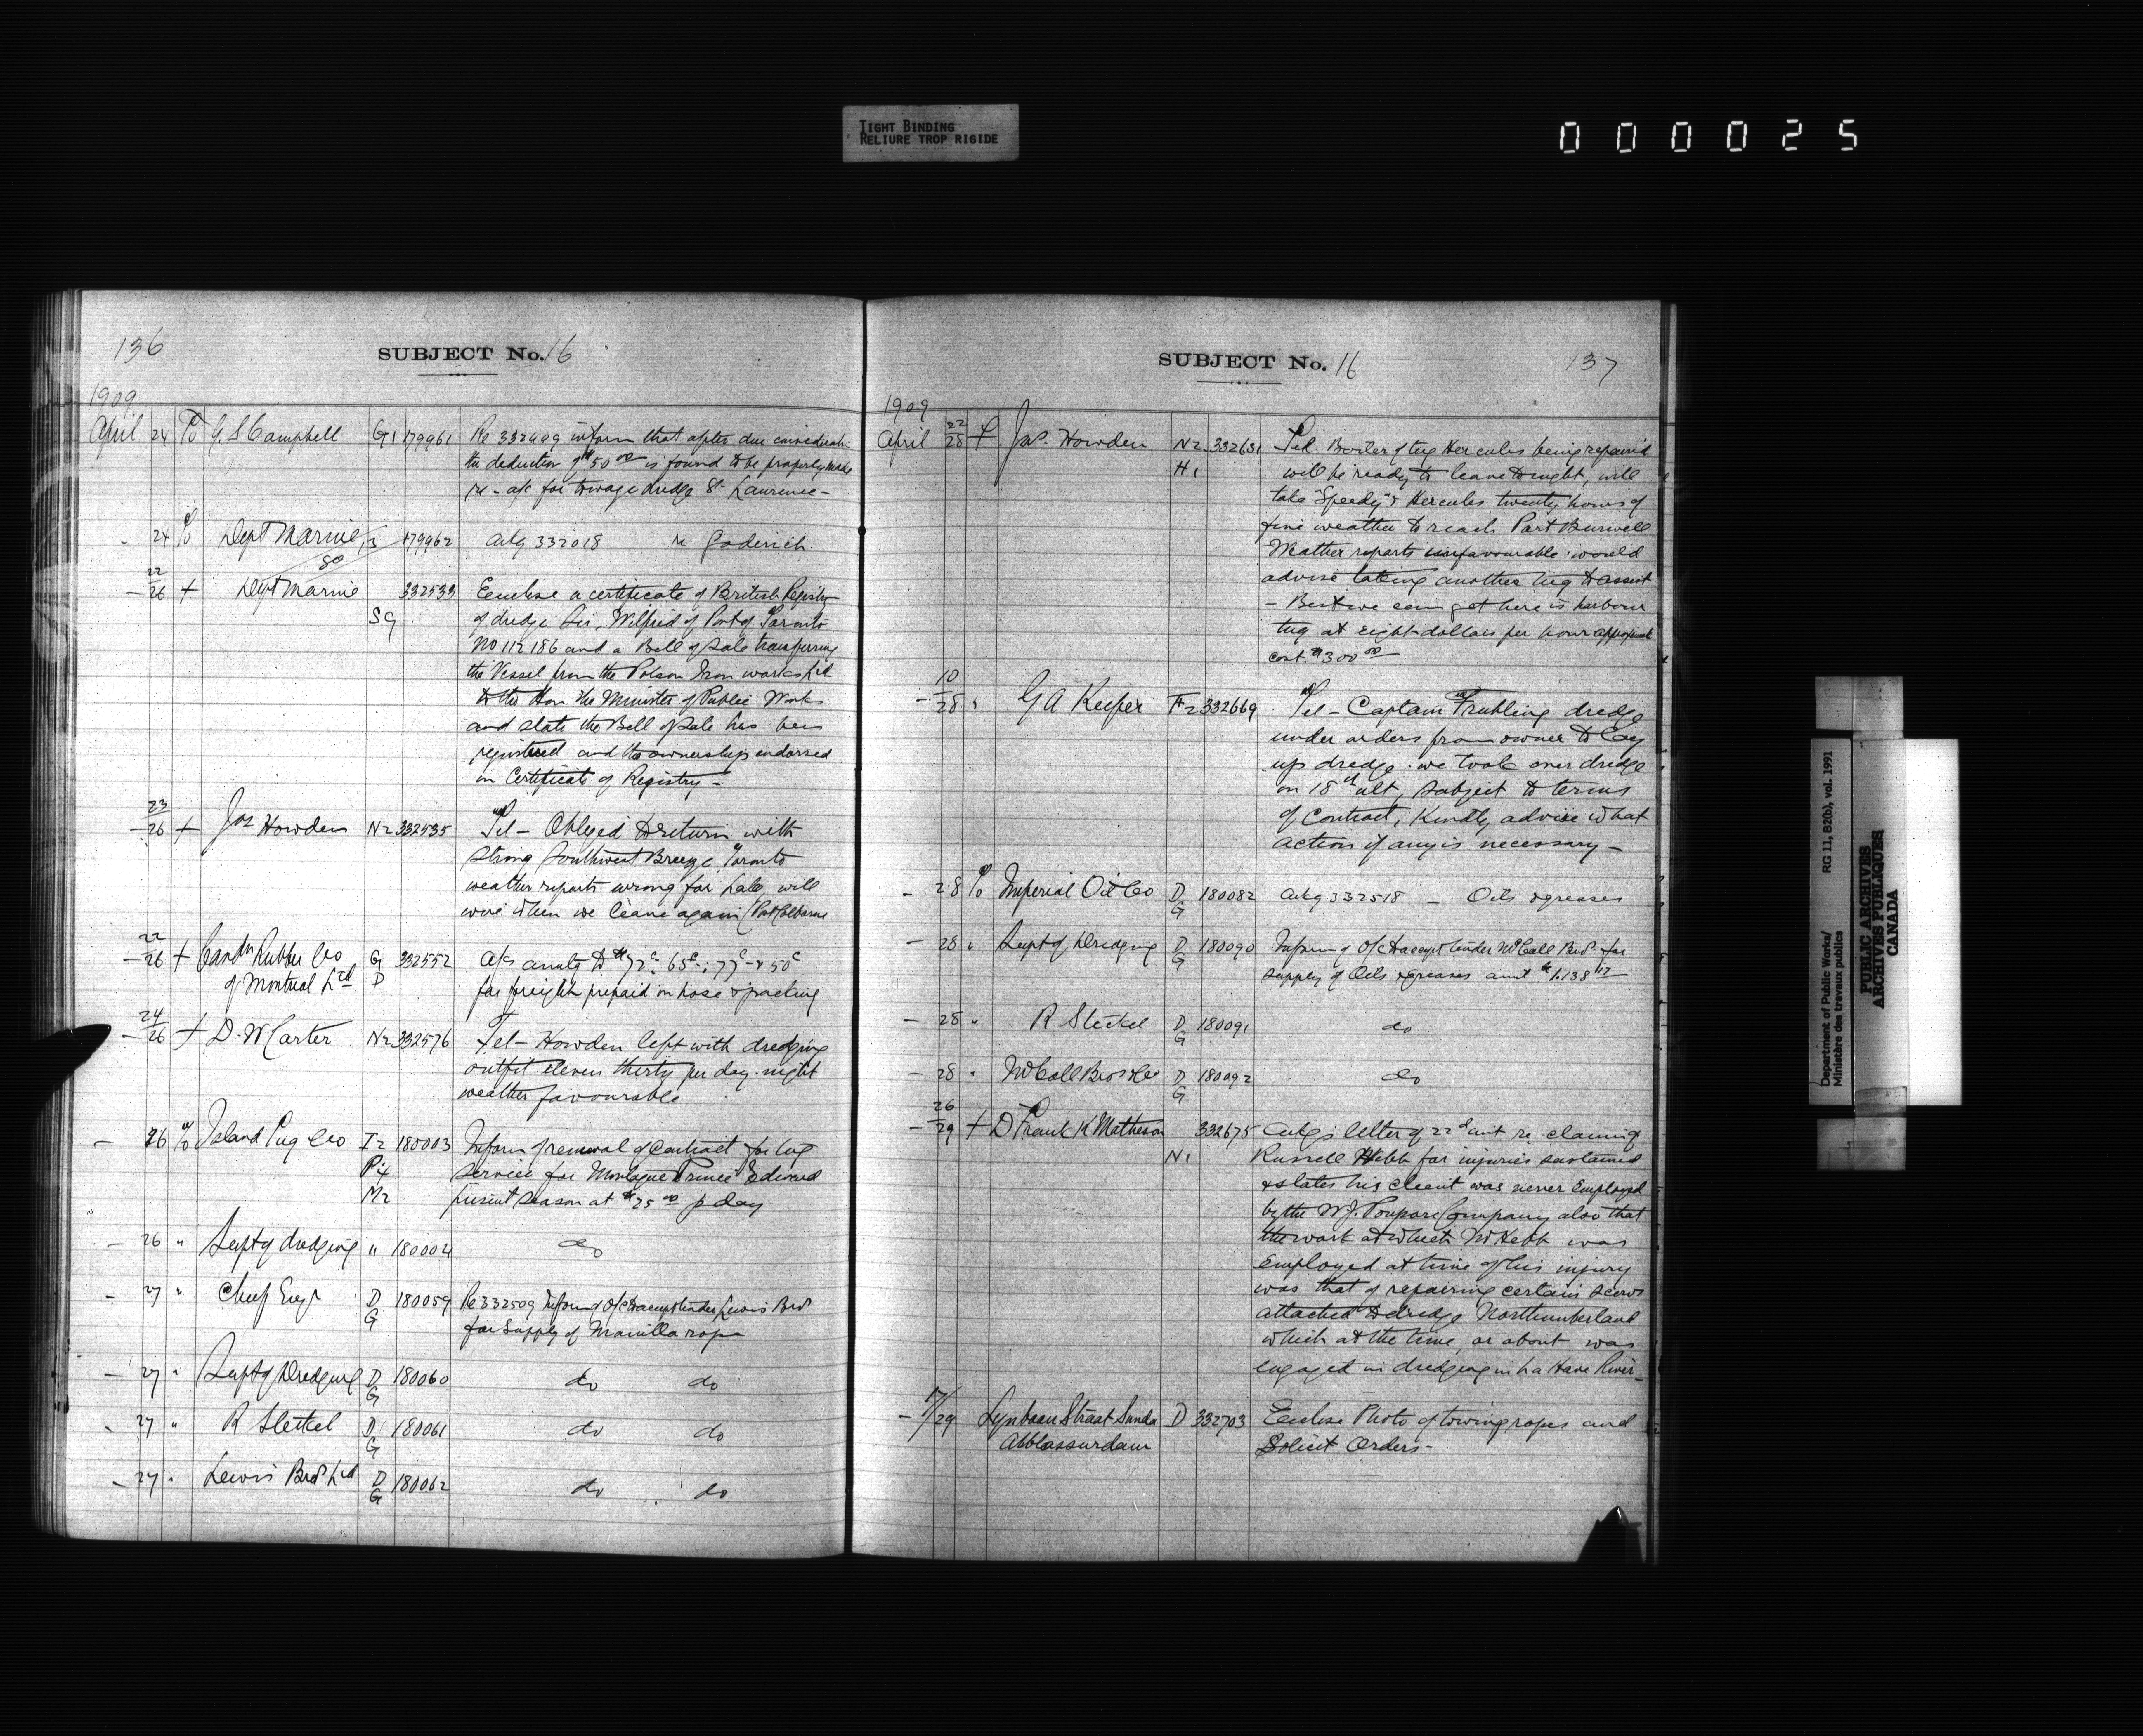 TIGHT BINDING
RELIURE TROP RIGIDE
000025
136
SUBJECT No. 16
1909
April 24 To G. S. Campbell G1 179961 Re 332499 inform that after due considerat-
the deduction of $50 00 is found to be properly made
re - a/c for towage dredge St Laurence -
- 24 To Dept Marine 179962 ackg 332018 re Goderich
22
- 26 + Dept Marine 332533 Enclose a certificate of British Registry
SG of dredge Sir Wilfrid of Port of Toronto
No 112186 and a Bill of Sale transferring
the Vessel from the Polson Iron works Ltd
to the Hon the Minister of Public Works
and state the Bill of Sale has been
registered and the ownership endorsed
on Certificate of Registry -
23
- 26 + Jas Howden N2 332535 Tel - Obliged to return with
strong Southwest Breeze, Toronto
weather reports wrong for Lake, will
wire when we leave again (Port Colborne
22
- 26 + Candn Rubber Co G 332552 a/cs amtg to $72c. 65c: 77c & 50c
of Montreal Ltd D for freight prepaid on hose & packing
24
- 26 + D. W Carter N2 332576 Tel - Howden left with dredging
outfit eleven thirty per day. night
weather favourable
- 26 To Island Tug Co I2 180003 Inform of renewal of Contract for tug
P4 service for Montague Prince Edward
M2 present season at $25 00 p day
- 26 " Supt of dredging " 180004 do
- 27 " Chief Engr D 180059 Re 332509 Inform of O/C to accept tender Lewis Bros
G for Supply of Manilla rope
- 27 " Supt of Dredging D 180060 do do
G
- 27 " R Steckel D 180061 do do
G
- 27 " Lewis Bros Ltd D 180062 do do
G
SUBJECT No. 16
137
1909
22
April 28 + Jas. Howden N2 332631 Tel. Boiler of tug Hercules being repaired
H1 will be ready to leave tonight, will
take "Speedy" & Hercules twenty hours of
fine weather to reach Port Burwell
Weather reports unfavourable. would
advise taking another tug to assist
- Best we can get here is harbour
tug at eight dollars per hour approximate
cost $300 00
10
- 28 " G A Keefer F2 332669 Tel - Captain Fruhling dredge
under orders from owner to lay
up dredge. we took over dredge
on 18th ult, subject to terms
of Contract, Kindly advise what
action if any is necessary -
- 28 To Imperial Oil Co D 180082 ackg 332518 - Oils & greases
G
- 28 " Supt of Dredging D 180090 Inform of O/C to accept tender McCall Bros for
G supply of Oils & greases amt $1.138 12
- 28 " R Steckel D 180091 do
G
- 28 " McCall Bros & Co D 180092 do
G
26
- 29 + D Frank K Matheson 332675 Ackgs letter of 22d inst re claim of
N1 Russell Hebb for injuries sustained
& states his client was never Employed
by the W. J. Poupore Company also that
the work at which Mr Hebb was
Employed at time of his injury
was that of repairing certain scows
attached to dredge Northumberland
which at the time, or about was
engaged in dredging in La Have River -
17
- 29 Lynbaan Straat Sunda D 332703 Enclose Photo of towing ropes and
Solicit Orders -
Department of Public Works/
Ministère des travaux publics
RG 11, B2(b), vol. 1991
PUBLIC ARCHIVES
ARCHIVES PUBLIQUES
CANADA